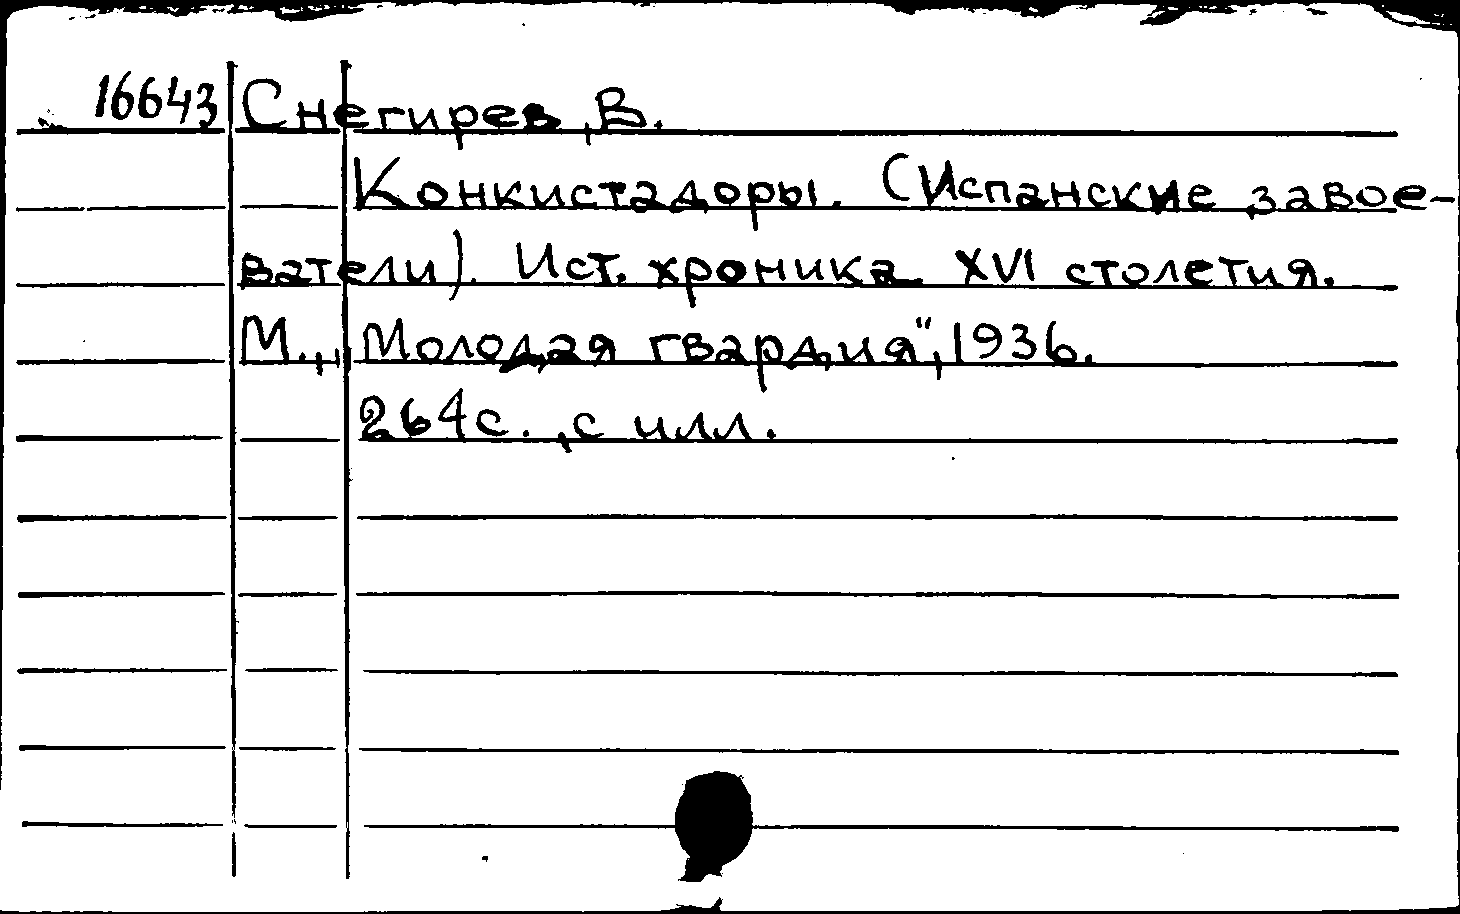 16643 Снегирев, В.
Конкистадоры. (Испанские завое-
ватели). Ист. хроника XVI столетия.
М., „Молодая гвардия", 1936.
264 с., с илл.